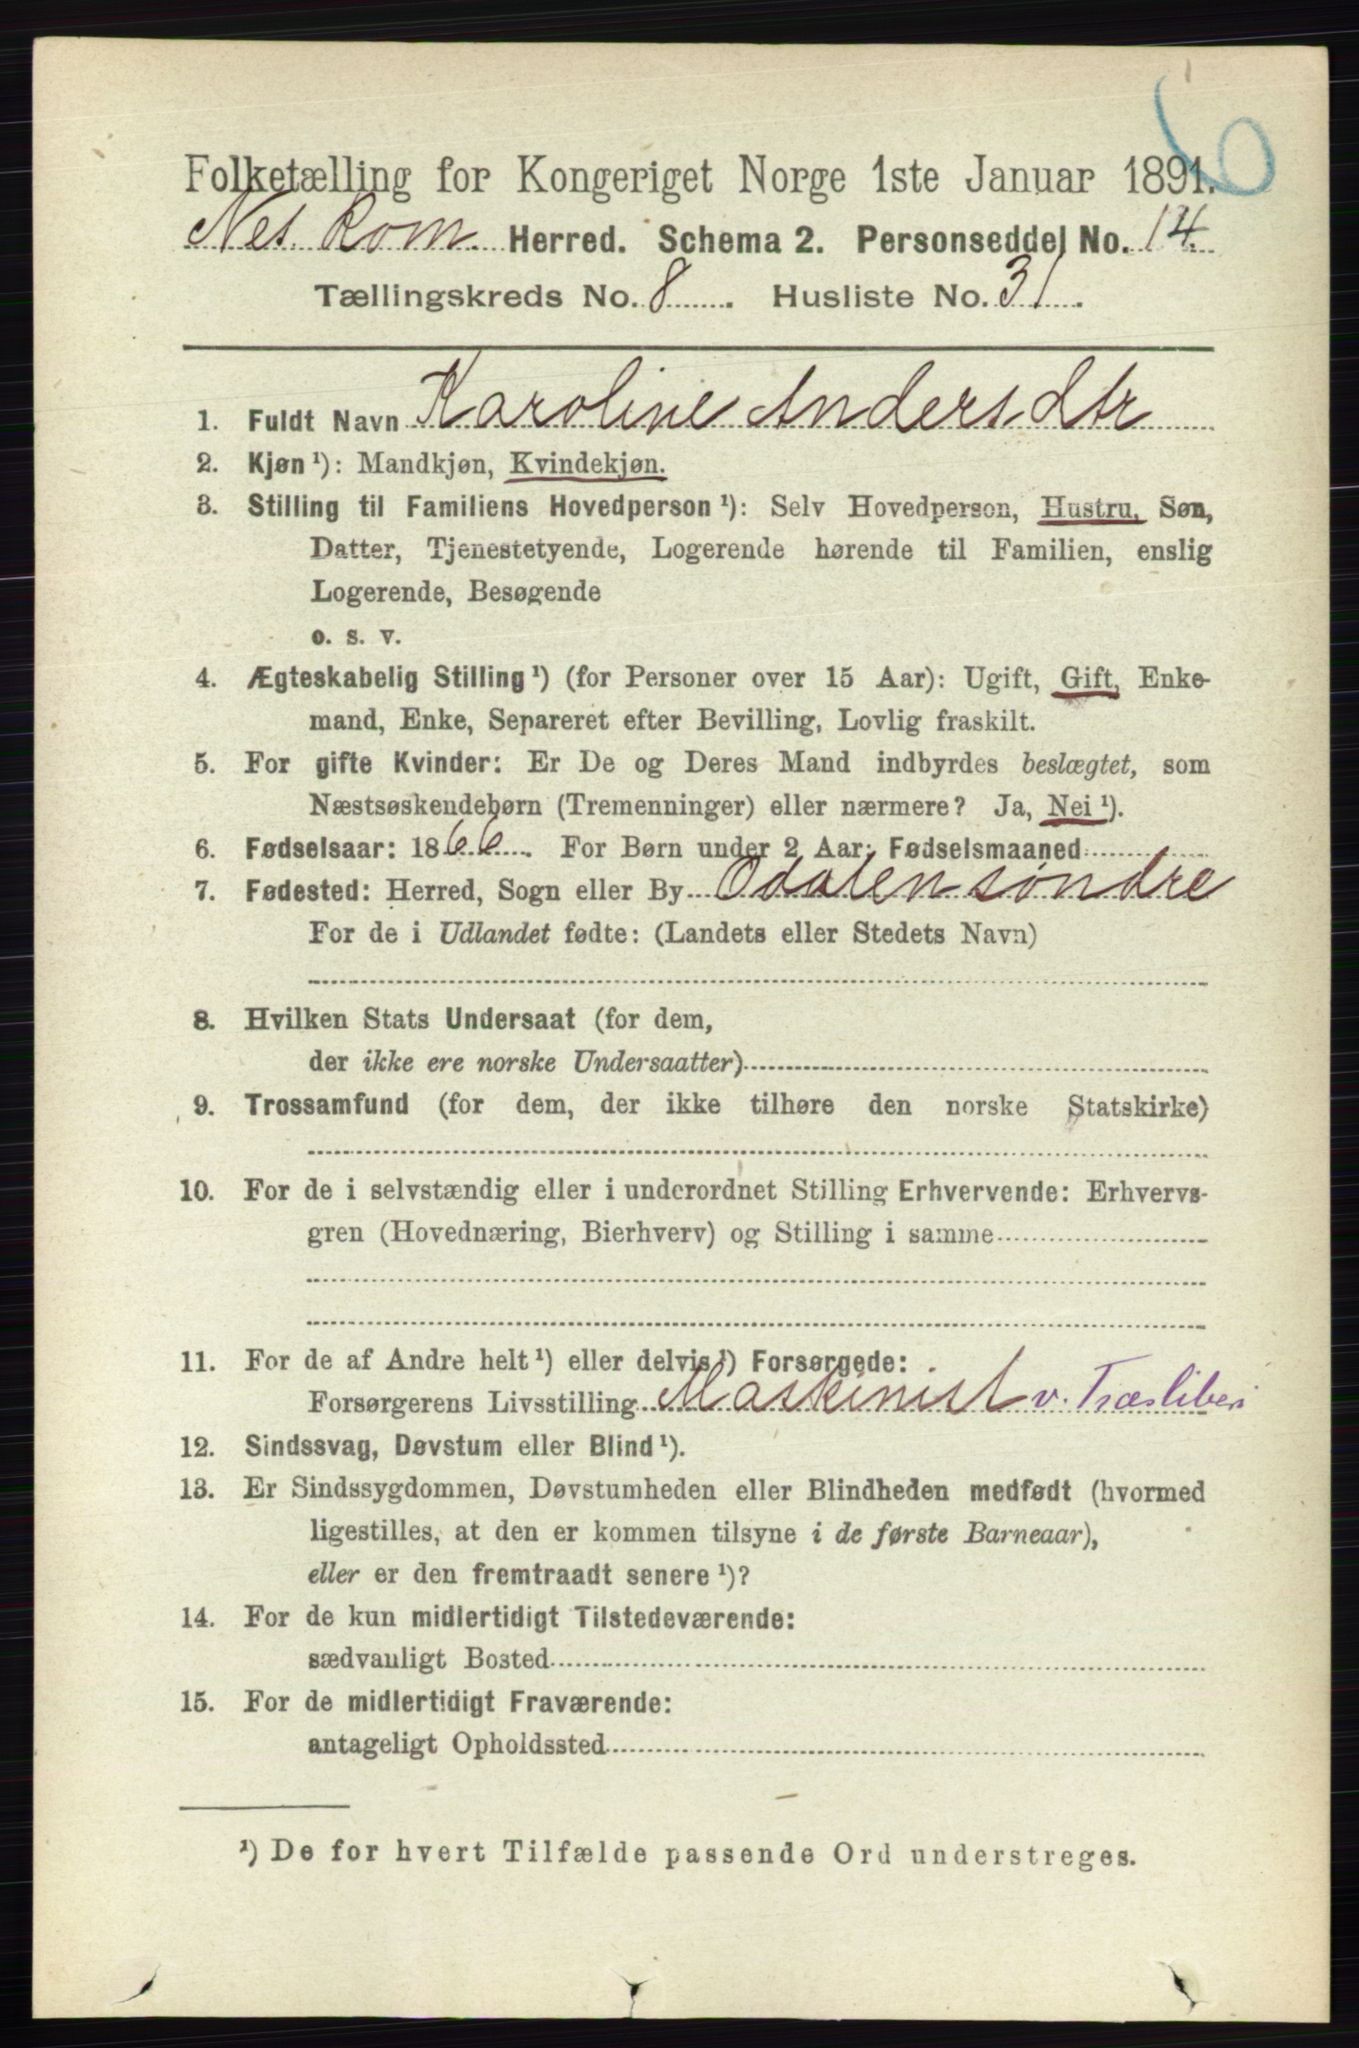 6
Folketælling for Kongeriget Norge 1ste Januar 1891.
Nes. Rom. Herred. Schema 2. Personseddel No. 14.
Tællingskreds No. 8. Husliste No. 31.
1. Fuldt Navn Karoline Andersdtr
2. Kjøn ¹): Mandkjøn, Kvindekjøn.
3. Stilling til Familiens Hovedperson ¹): Selv Hovedperson, Hustru, Søn,
Datter, Tjenestetyende, Logerende hørende til Familien, enslig
Logerende, Besøgende
o. s. v.
4. Ægteskabelig Stilling ¹) (for Personer over 15 Aar): Ugift, Gift, Enke-
mand, Enke, Separeret efter Bevilling, Lovlig fraskilt.
5. For gifte Kvinder: Er De og Deres Mand indbyrdes beslægtet, som
Næstsøskendebørn (Tremenninger) eller nærmere? Ja, Nei ¹).
6. Fødselsaar: 1866. For Børn under 2 Aar: Fødselsmaaned
7. Fødested: Herred, Sogn eller By Odalen søndre
For de i Udlandet fødte: (Landets eller Stedets Navn)
8. Hvilken Stats Undersaat (for dem,
der ikke ere norske Undersaatter)
9. Trossamfund (for dem, der ikke tilhøre den norske Statskirke)
10. For de i selvstændig eller i underordnet Stilling Erhvervende: Erhvervs-
gren (Hovednæring, Bierhverv) og Stilling i samme
11. For de af Andre helt ¹) eller delvis ¹) Forsørgede:
Forsørgerens Livsstilling Maskinist v. Træsliberi
12. Sindssvag, Døvstum eller Blind ¹).
13. Er Sindssygdommen, Døvstumheden eller Blindheden medfødt (hvormed
ligestilles, at den er kommen tilsyne i de første Barneaar),
eller er den fremtraadt senere ¹)?
14. For de kun midlertidigt Tilstedeværende:
sædvanligt Bosted
15. For de midlertidigt Fraværende:
antageligt Opholdssted
¹) De for hvert Tilfælde passende Ord understreges.